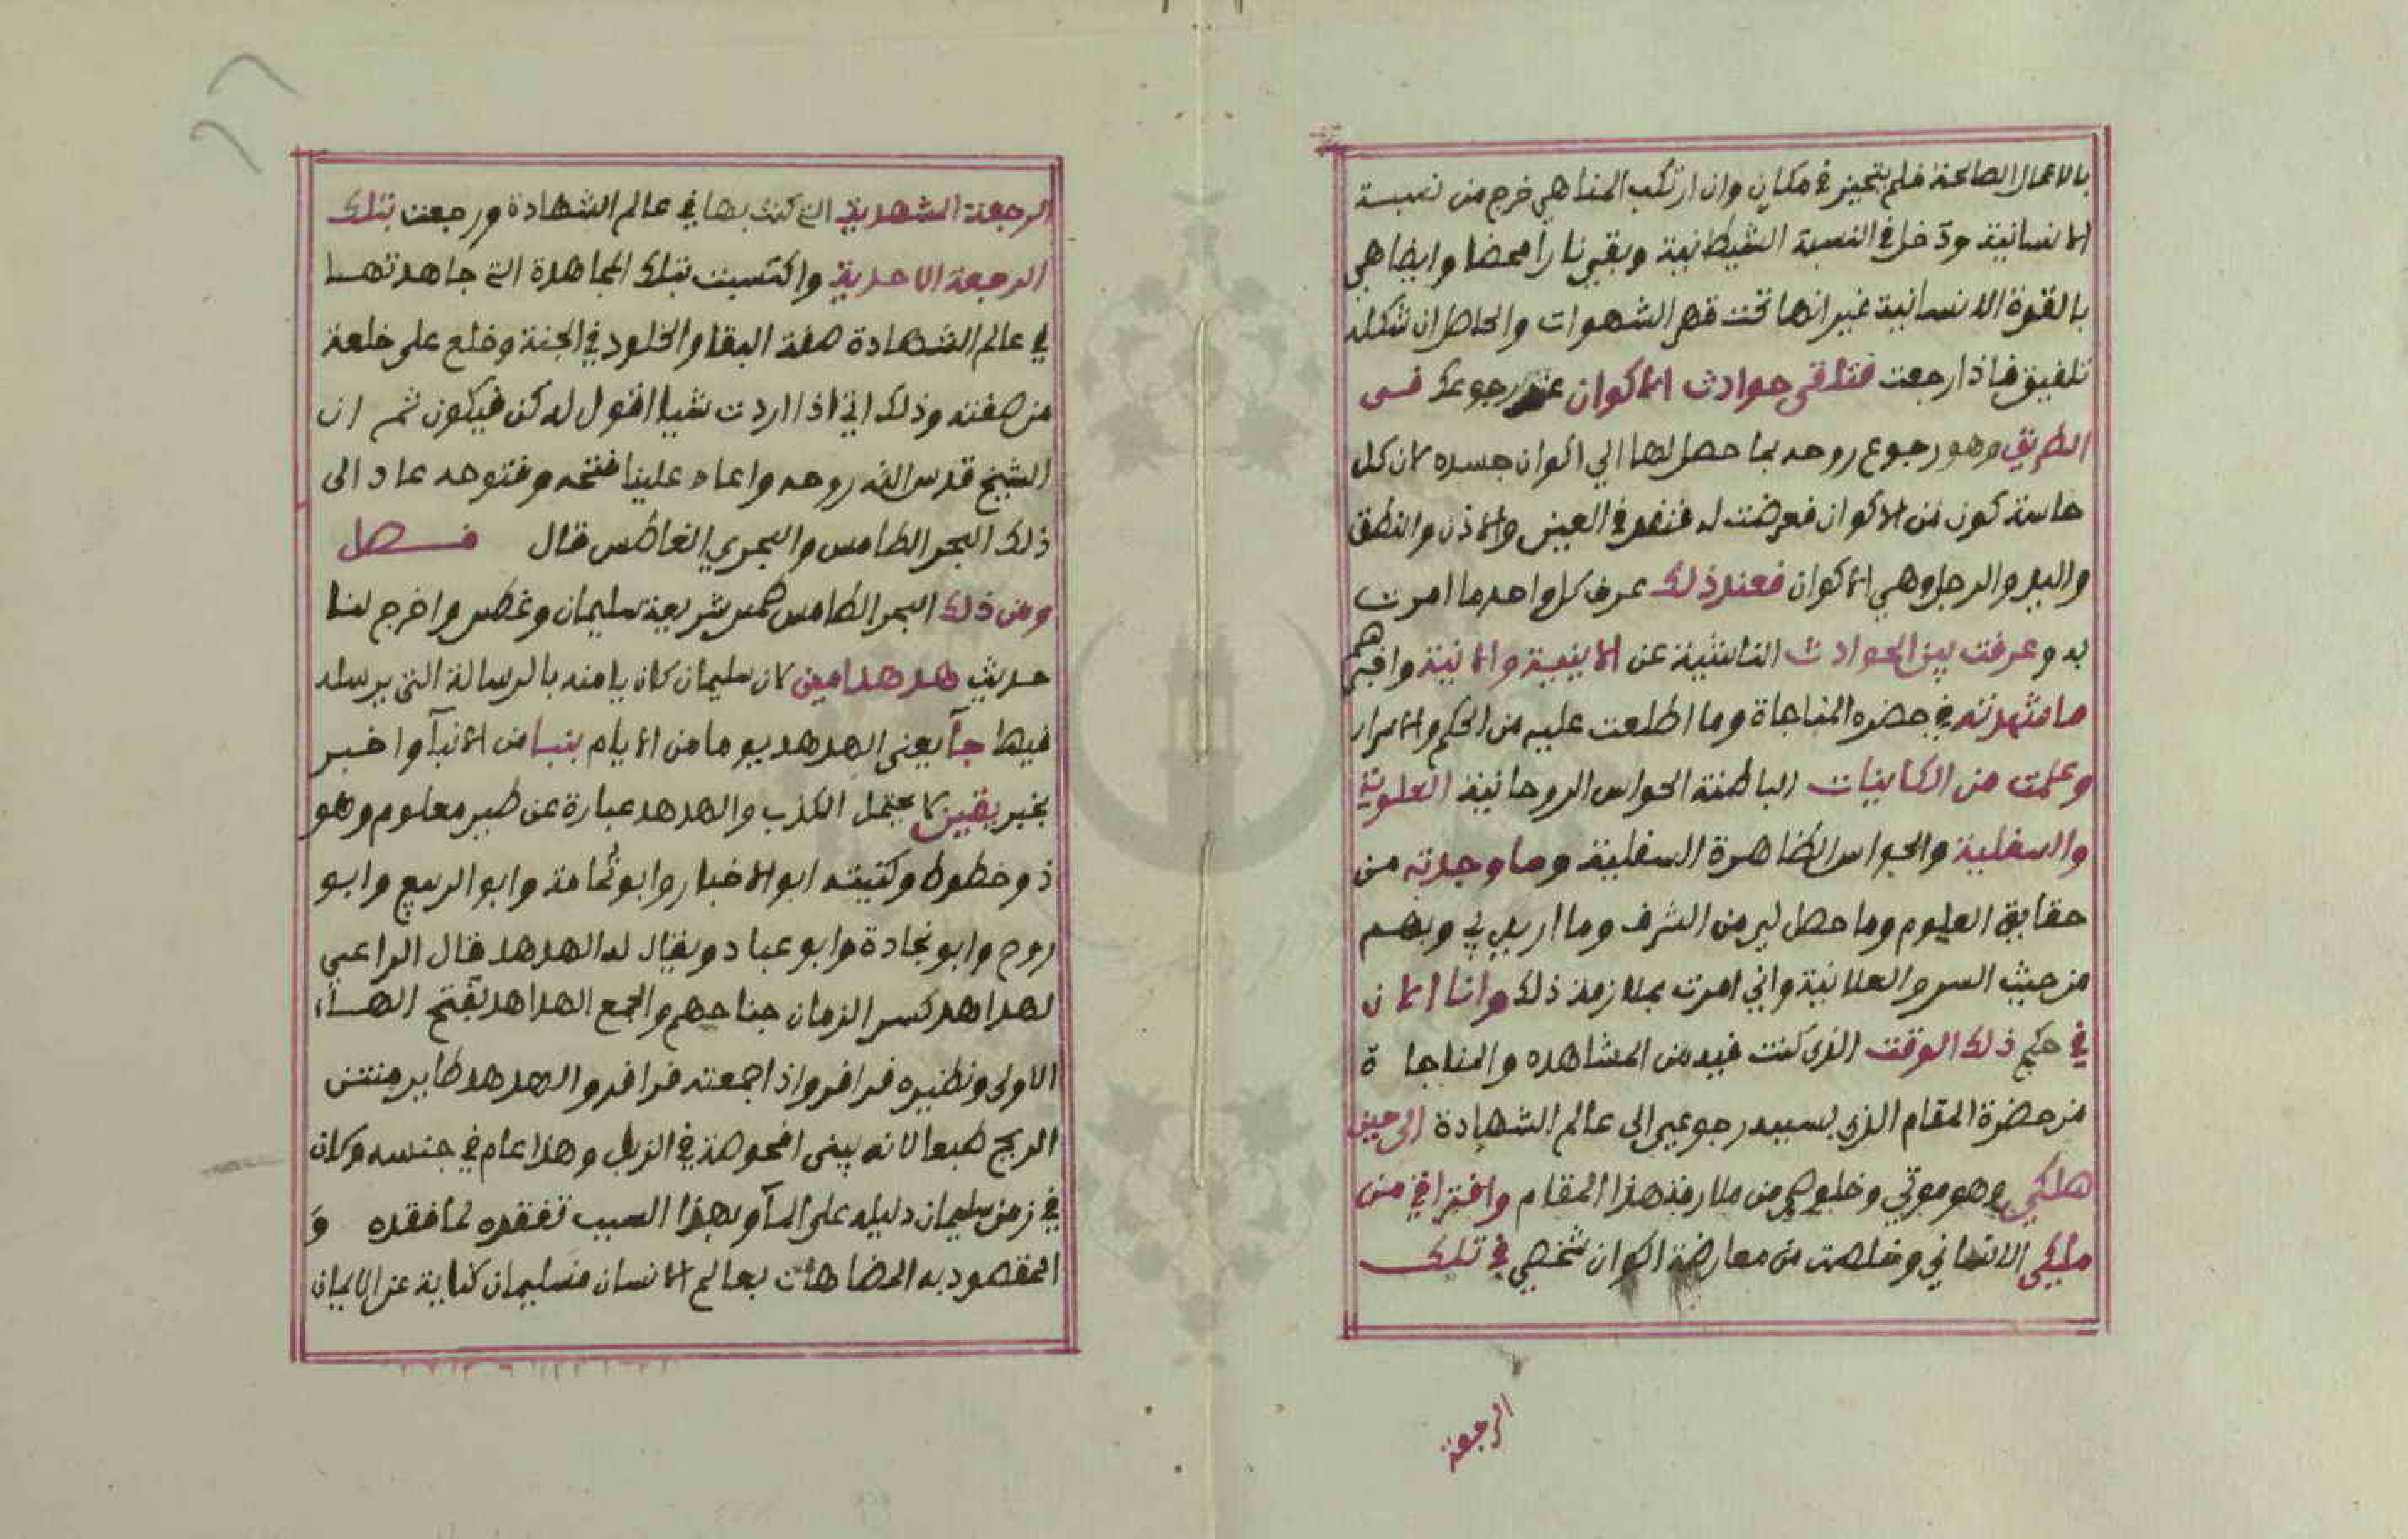 بالاعمال الصالحة فلم يتحيز في مكان وان ارتكب المناهي خرج من نسبة
الانسانية ودخل في النسبة الشيطانية وبقي نارا محضا وايضا هي
بالقوة الانسانية غير انها تحت قهر الشهوات والخاطر ان شكله
تلفيق فاذا رجعت فتلاقى حوادث الاكوان عند رجوعك فى
الطريق وهو رجوع روحه بما حصل لها الي اكوان جسده لان كل
حاسة كون من الاكوان فعرضت له فنفر في العين والاذن والنطق
واليد والرجل وهي الاكوان فعند ذلك عرف كل واحد ما امرت
به وعرفت بين الحوادث الناشئية عن الاينية والانية وافيهم
ما شهدته في حضره المناجاة وما اطلعت عليه من الحكم والاسرار
وعلمت من الكاينات الباطنة الحواس الروحانية العلوية
والسفلية والحواس الظاهرة السفلية وما وجدته من
حقايق العلوم وما حصل لي من الشرف وما اريد بي وبهم
من حيث السر والعلانية واني امرت بملازمة ذلك وانا الان
في حكم ذلك الوقت الذي كنت فيه من المشاهده والمناجاة
من حضرة المقام الذي بسببه رجوعي الى عالم الشهادة الى حين
هلكي وهو موتي وخلوصي من ملازمة هذا المقام وافتراقي من
ملكي الانساني وخلصت من معارضة اكوان شخصي في تلك
الرجعة
الرجعة الشهدية التي كنت بها في عالم الشهادة ورجعت بتلك
الرجعة الاحدية واكتسبت بتلك المجاهدة التي جاهدتها
في عالم الشهادة صفة البقا والخلود في الجنة وخلع على خلعة
من صفته وذلك اني اذا اردت شيا اقول له كن فيكون ثم ان
الشيخ قدس الله روحه واعاد علينا فتحه وفتوحه عاد الى
ذلك البحر الطامس والبحري الغاطس قال فصل
ومن ذلك البحر الطامس طمس شريعة سليمان وغطس واخرج لنا
حديث هدهد امين لان سليمان كان يامنه بالرسالة التى يرسله
فيها جآ يعنى الهدهد يوما من الايام بنبا من الانبآ واخبر
بخبر يقين لا يحتمل الكذب والهدهد عبارة عن طير معلوم وهو
ذو خطوط وكنيته ابو الاخبار وابو ثمامة وابو الربيع وابو
روح وابو نجادة وابو عباد ويقال له الهدهد قال الراعي
لهداهد كسر الزمان جناحهم والجمع الهداهد بفتح الهاء
الاولى ونظيره فرافر واذا جمعته فرافر والهدهد طاير منتن
الريح طبعا لانه يبنى افحوصة في الزبل وهذا عام في جنسه وكان
في زمن سليمان دليله على المآ وبهذا السبب تفقده لما فقده و
المقصود به المضاهات بعالم الانسان فسليمان كناية عن الايمان